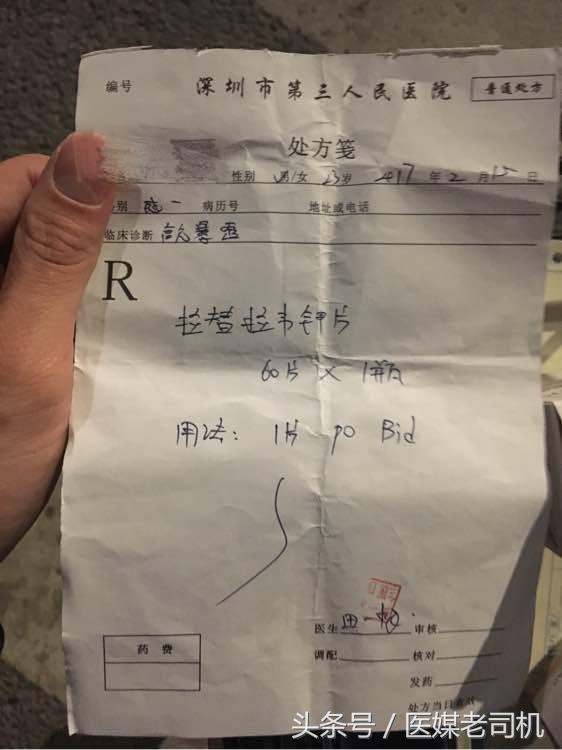 编号 深圳市第三人民医院 普通处方
处方笺
性别 男/女 23岁 2017年2月15日
别 病历号 地址或电话
临床诊断 高暴露
R
拉替拉韦钾片
60片 × 1瓶
用法: 1片 po Bid
医生 田一 审核
药费
调配 核对
发药
处方当日有效
头条号 / 医媒老司机